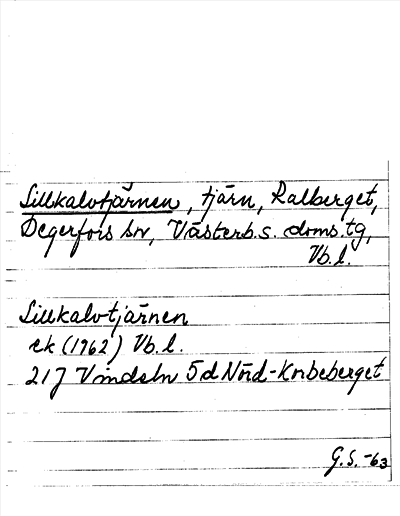 Sillkalvtjärnen, tjärn, Ralberget,
Degerfors sn, Västerb.s. doms.tg,
Vb.l.
Sillkalvtjärnen
ek (1962) Vb.l.
21J Vindeln 5d Nörd-Korbeberget
G.S. -63